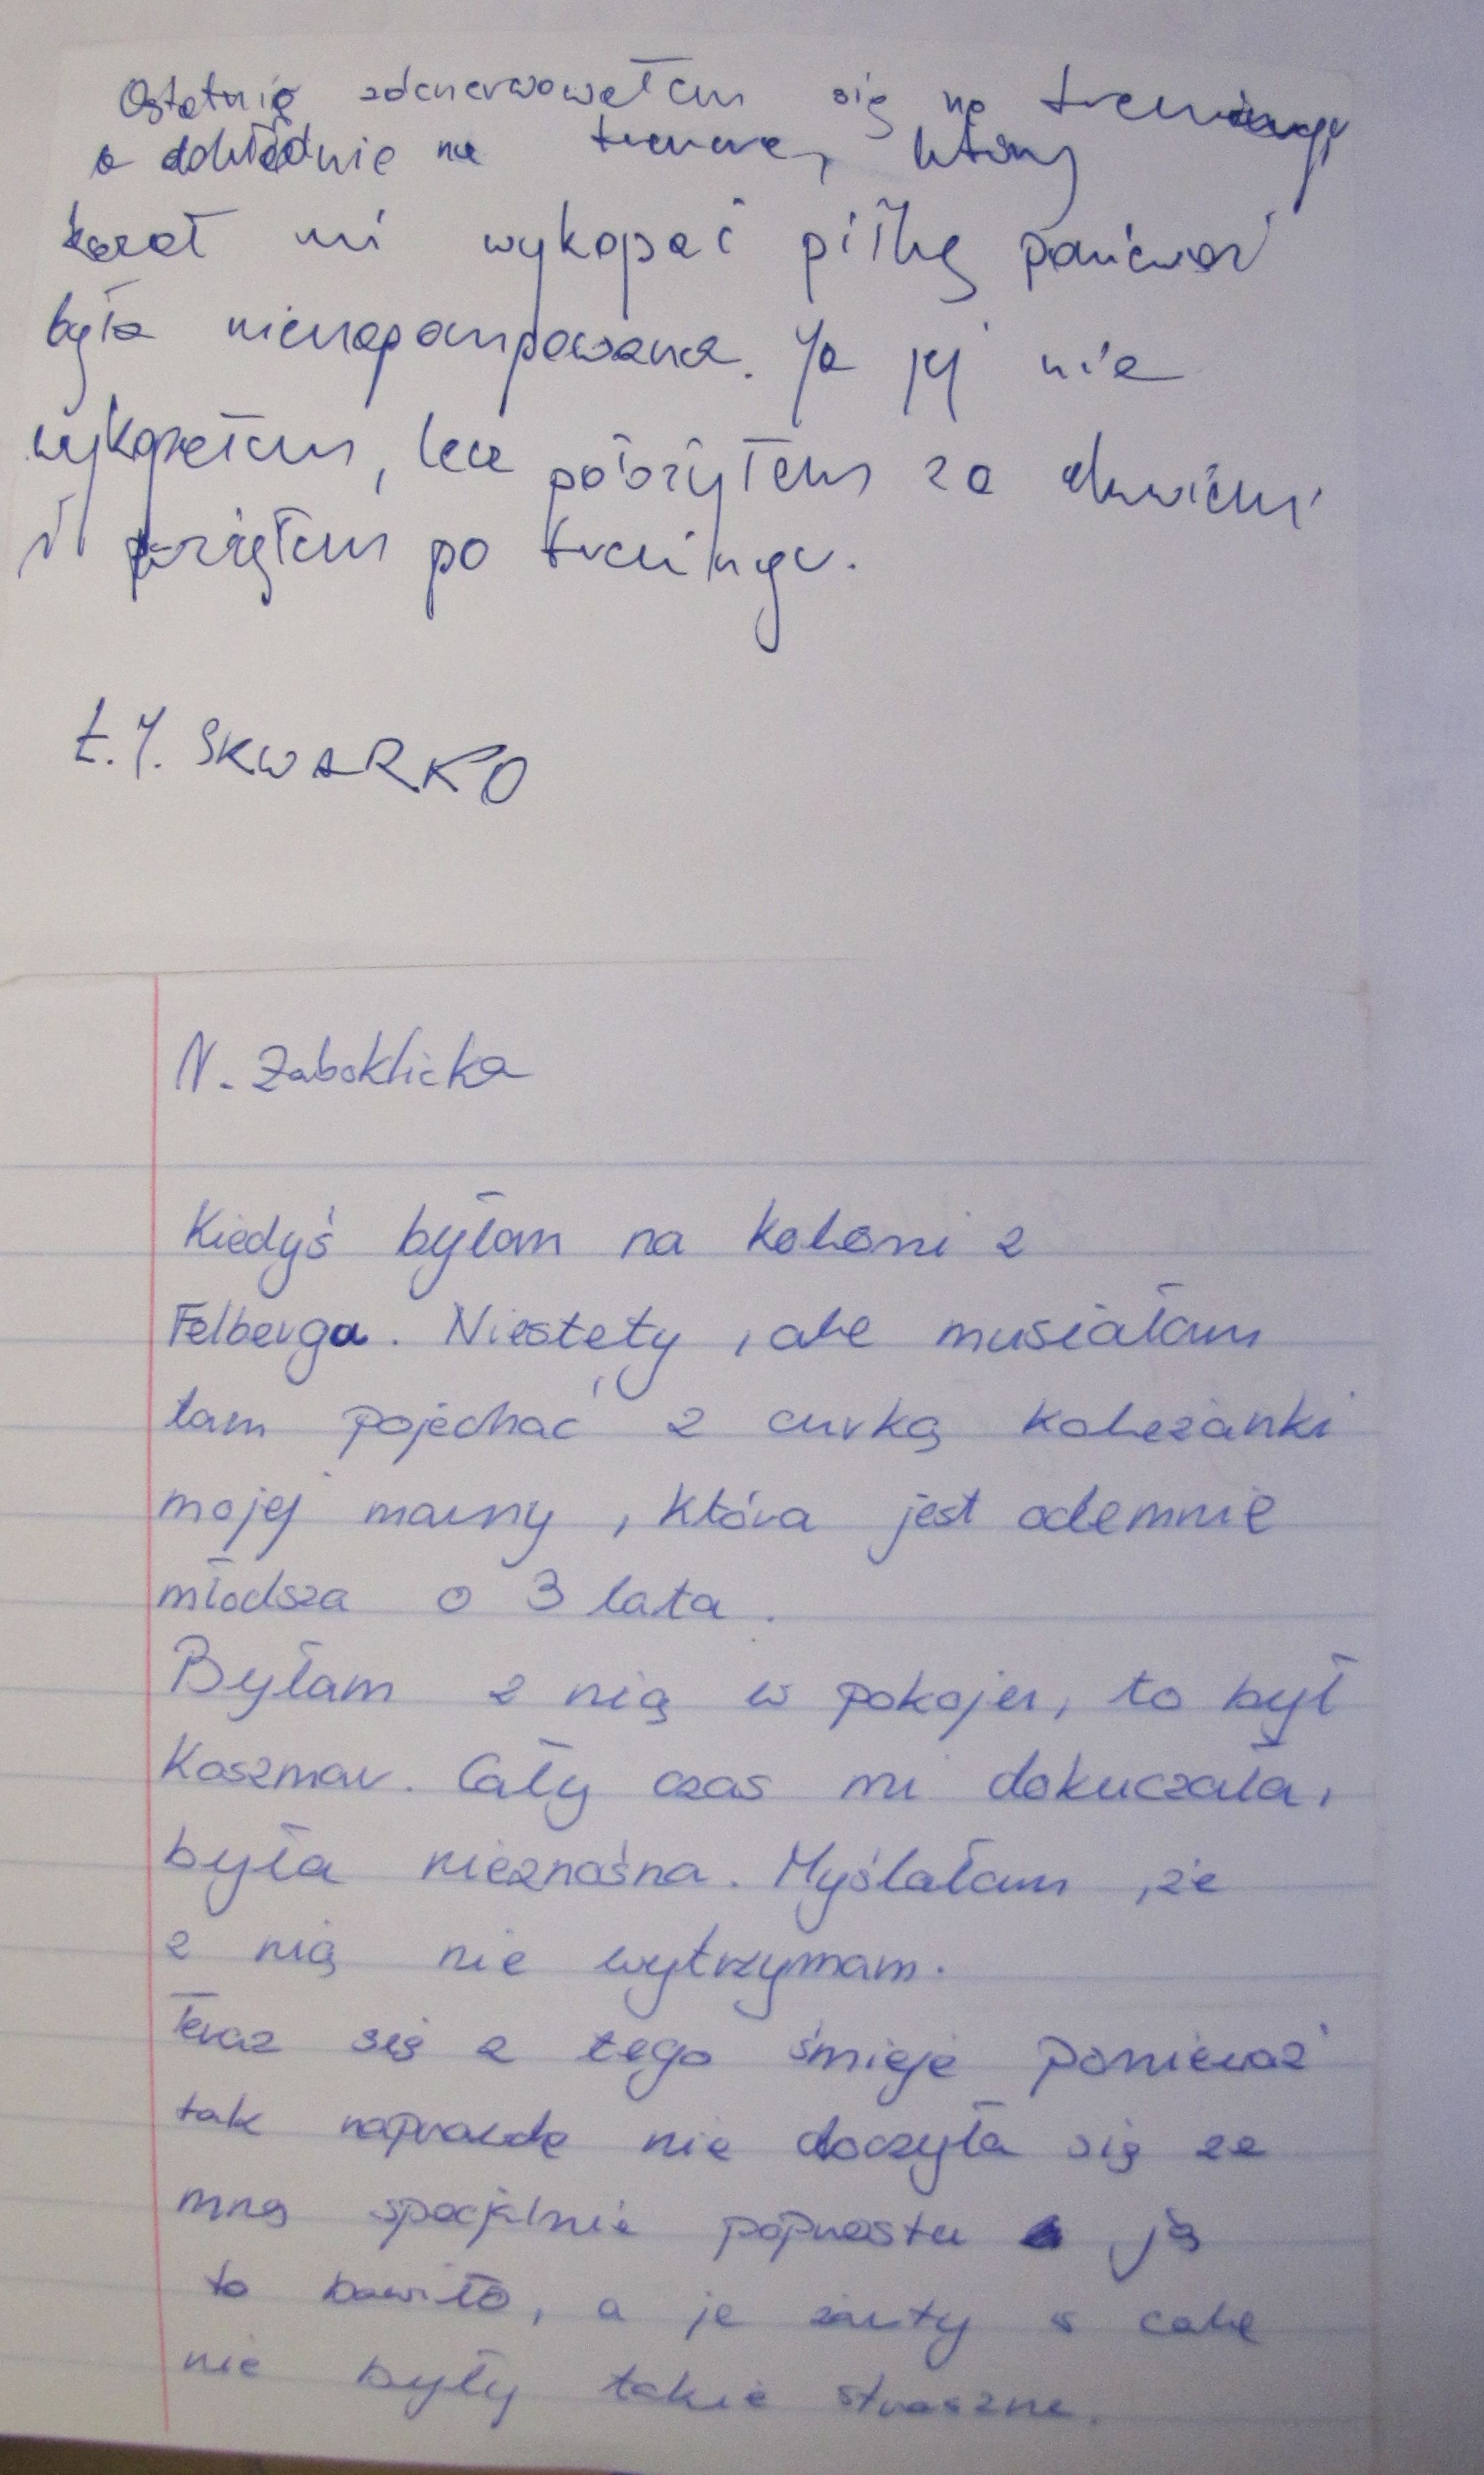 Ostatnię zdenerwowałem się na treningu
a dokładnie na trenera, który
kazał mi wykopać piłkę ponieważ
była nienapompowana. Ja jej nie
wykopałem, lecz położyłem za drzwiami
i wziąłem po treningu.
Ł.J. SKWARKO
N. Zaboklicka
Kiedyś byłam na koloni z
Felberga. Niestety, ale musiałam
tam pojechać z curką koleżanki
mojej mamy, która jest odemnie
młodsza o 3 lata.
Byłam z nią w pokoju, to był
Koszmar. Cały czas mi dokuczała,
była nieznośna. Myślałam, że
z nią nie wytrzymam.
Teraz się z tego śmieje ponieważ
tak naprawdę nie droczyła się ze
mną specjalnie poprostu ją
to bawiło, a je żarty w cale
nie były takie straszne.